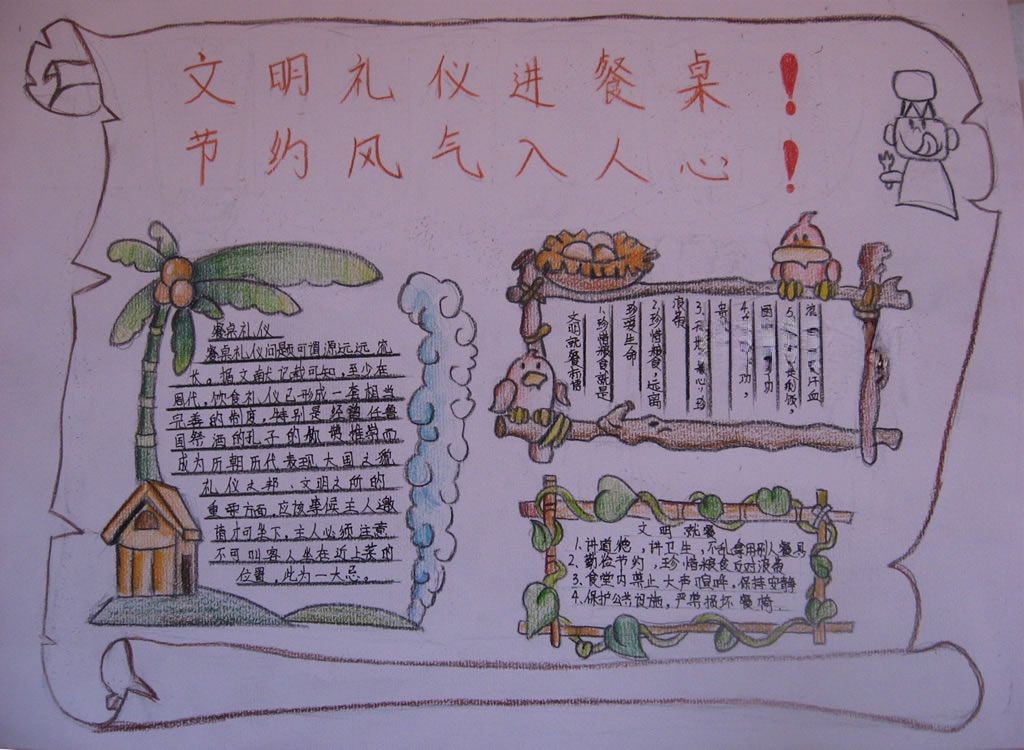 文明礼仪进餐桌！
节约风气入人心！
餐桌礼仪
餐桌礼仪问题可谓源远流
长。据文献记载可知，至少在
周代，饮食礼仪已形成一套相当
完善的制度，特别是经曾任鲁
国祭酒的孔子的称赞推崇而
成为历朝历代表现大国之貌
礼仪之邦、文明之所的
重要方面，应该等候主人邀
请才可坐下，主人必须注意
不可叫客人坐在近上菜的
位置，此为一大忌。
文明就餐标语
1.珍惜粮食就是
珍爱生命
2.珍惜粮食，远离
浪费
文明就餐
1.讲道德，讲卫生，不乱拿用别人餐具
2.勤俭节约，珍惜粮食反对浪费
3.食堂内禁止大声喧哗，保持安静
4.保护公共设施，严禁损坏餐椅